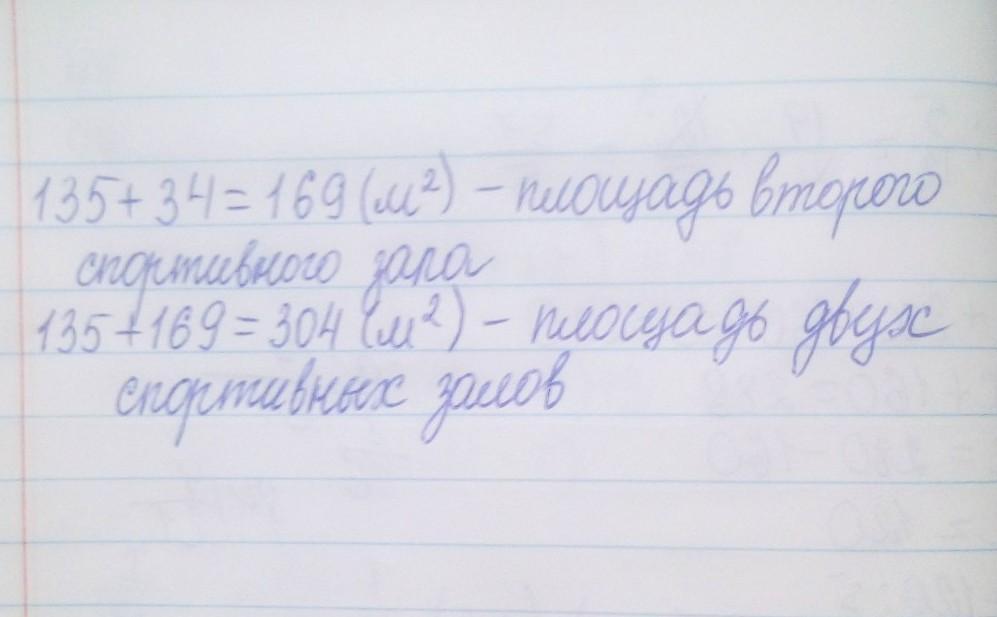 135+34=169(м²) – площадь второго
спортивного зала
135+169=304(м²) – площадь двух
спортивных залов